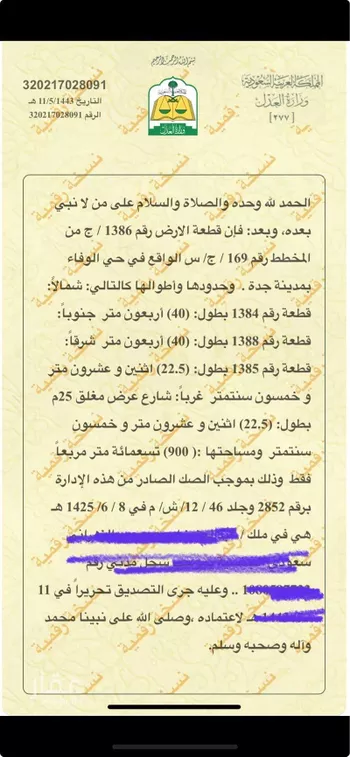 بسم الله الرحمن الرحيم
المملكة العربية السعودية
وزارة العدل
[٢٧٧]
320217028091
التاريخ 11/5/1443 هـ
الرقم 320217028091
وزارة العدل
الحمد لله وحده والصلاة والسلام على من لا نبي
بعده، وبعد: فإن قطعة الارض رقم 1386 / ج من
المخطط رقم 169 / ج/ س الواقع في حي الوفاء
بمدينة جدة . وحدودها وأطوالها كالتالي: شمالاً:
قطعة رقم 1384 بطول: (40) أربعون متر جنوباً:
قطعة رقم 1388 بطول: (40) أربعون متر شرقاً:
قطعة رقم 1385 بطول: (22.5) اثنين و عشرون متر
و خمسون سنتمتر غرباً: شارع عرض مغلق 25م
بطول: (22.5) اثنين و عشرون متر و خمسون
سنتمتر ومساحتها :( 900) تسعمائة متر مربعاً
فقط وذلك بموجب الصك الصادر من هذه الإدارة
برقم 2852 وجلد 46 / 12/ ش/ م في 8 /6 /1425 هـ
هي في ملك /
سعودي سجل مدني رقم
.. وعليه جرى التصديق تحريراً في 11
هـ لاعتماده ،وصلى الله على نبينا محمد
وآله وصحبه وسلم.
نسخة رقمية
عقار